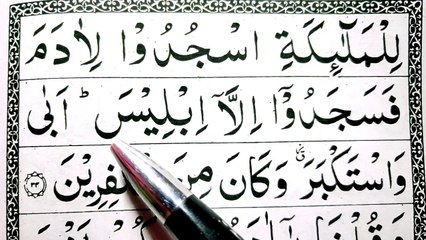 لِلْمَلٰٓئِكَةِ اسْجُدُوْا لِاٰدَمَ
فَسَجَدُوْۤا اِلَّاۤ اِبْلِيْسَ ؕ اَبٰى
وَاسْتَكْبَرَ ۗ٘ وَكَانَ مِنَ الْكٰفِرِيْنَ ۝۳۴